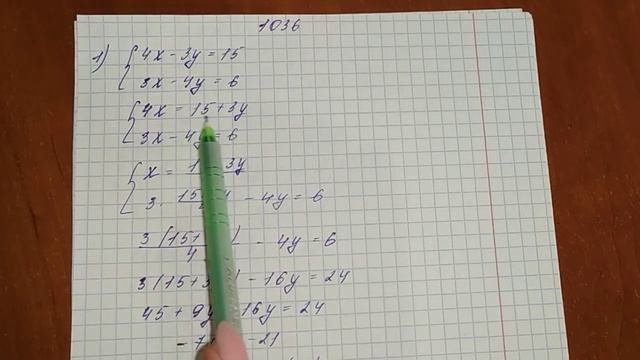 1036
1) 4x - 3y = 15
3x - 4y = 6
4x = 15 + 3y
3x - 4y = 6
x = 3y
3 · 15 - 4y = 6
3 (15+ ) / 4 - 4y = 6
3 (15+3 ) - 16y = 24
45 + 9y 16y = 24
-7 -21